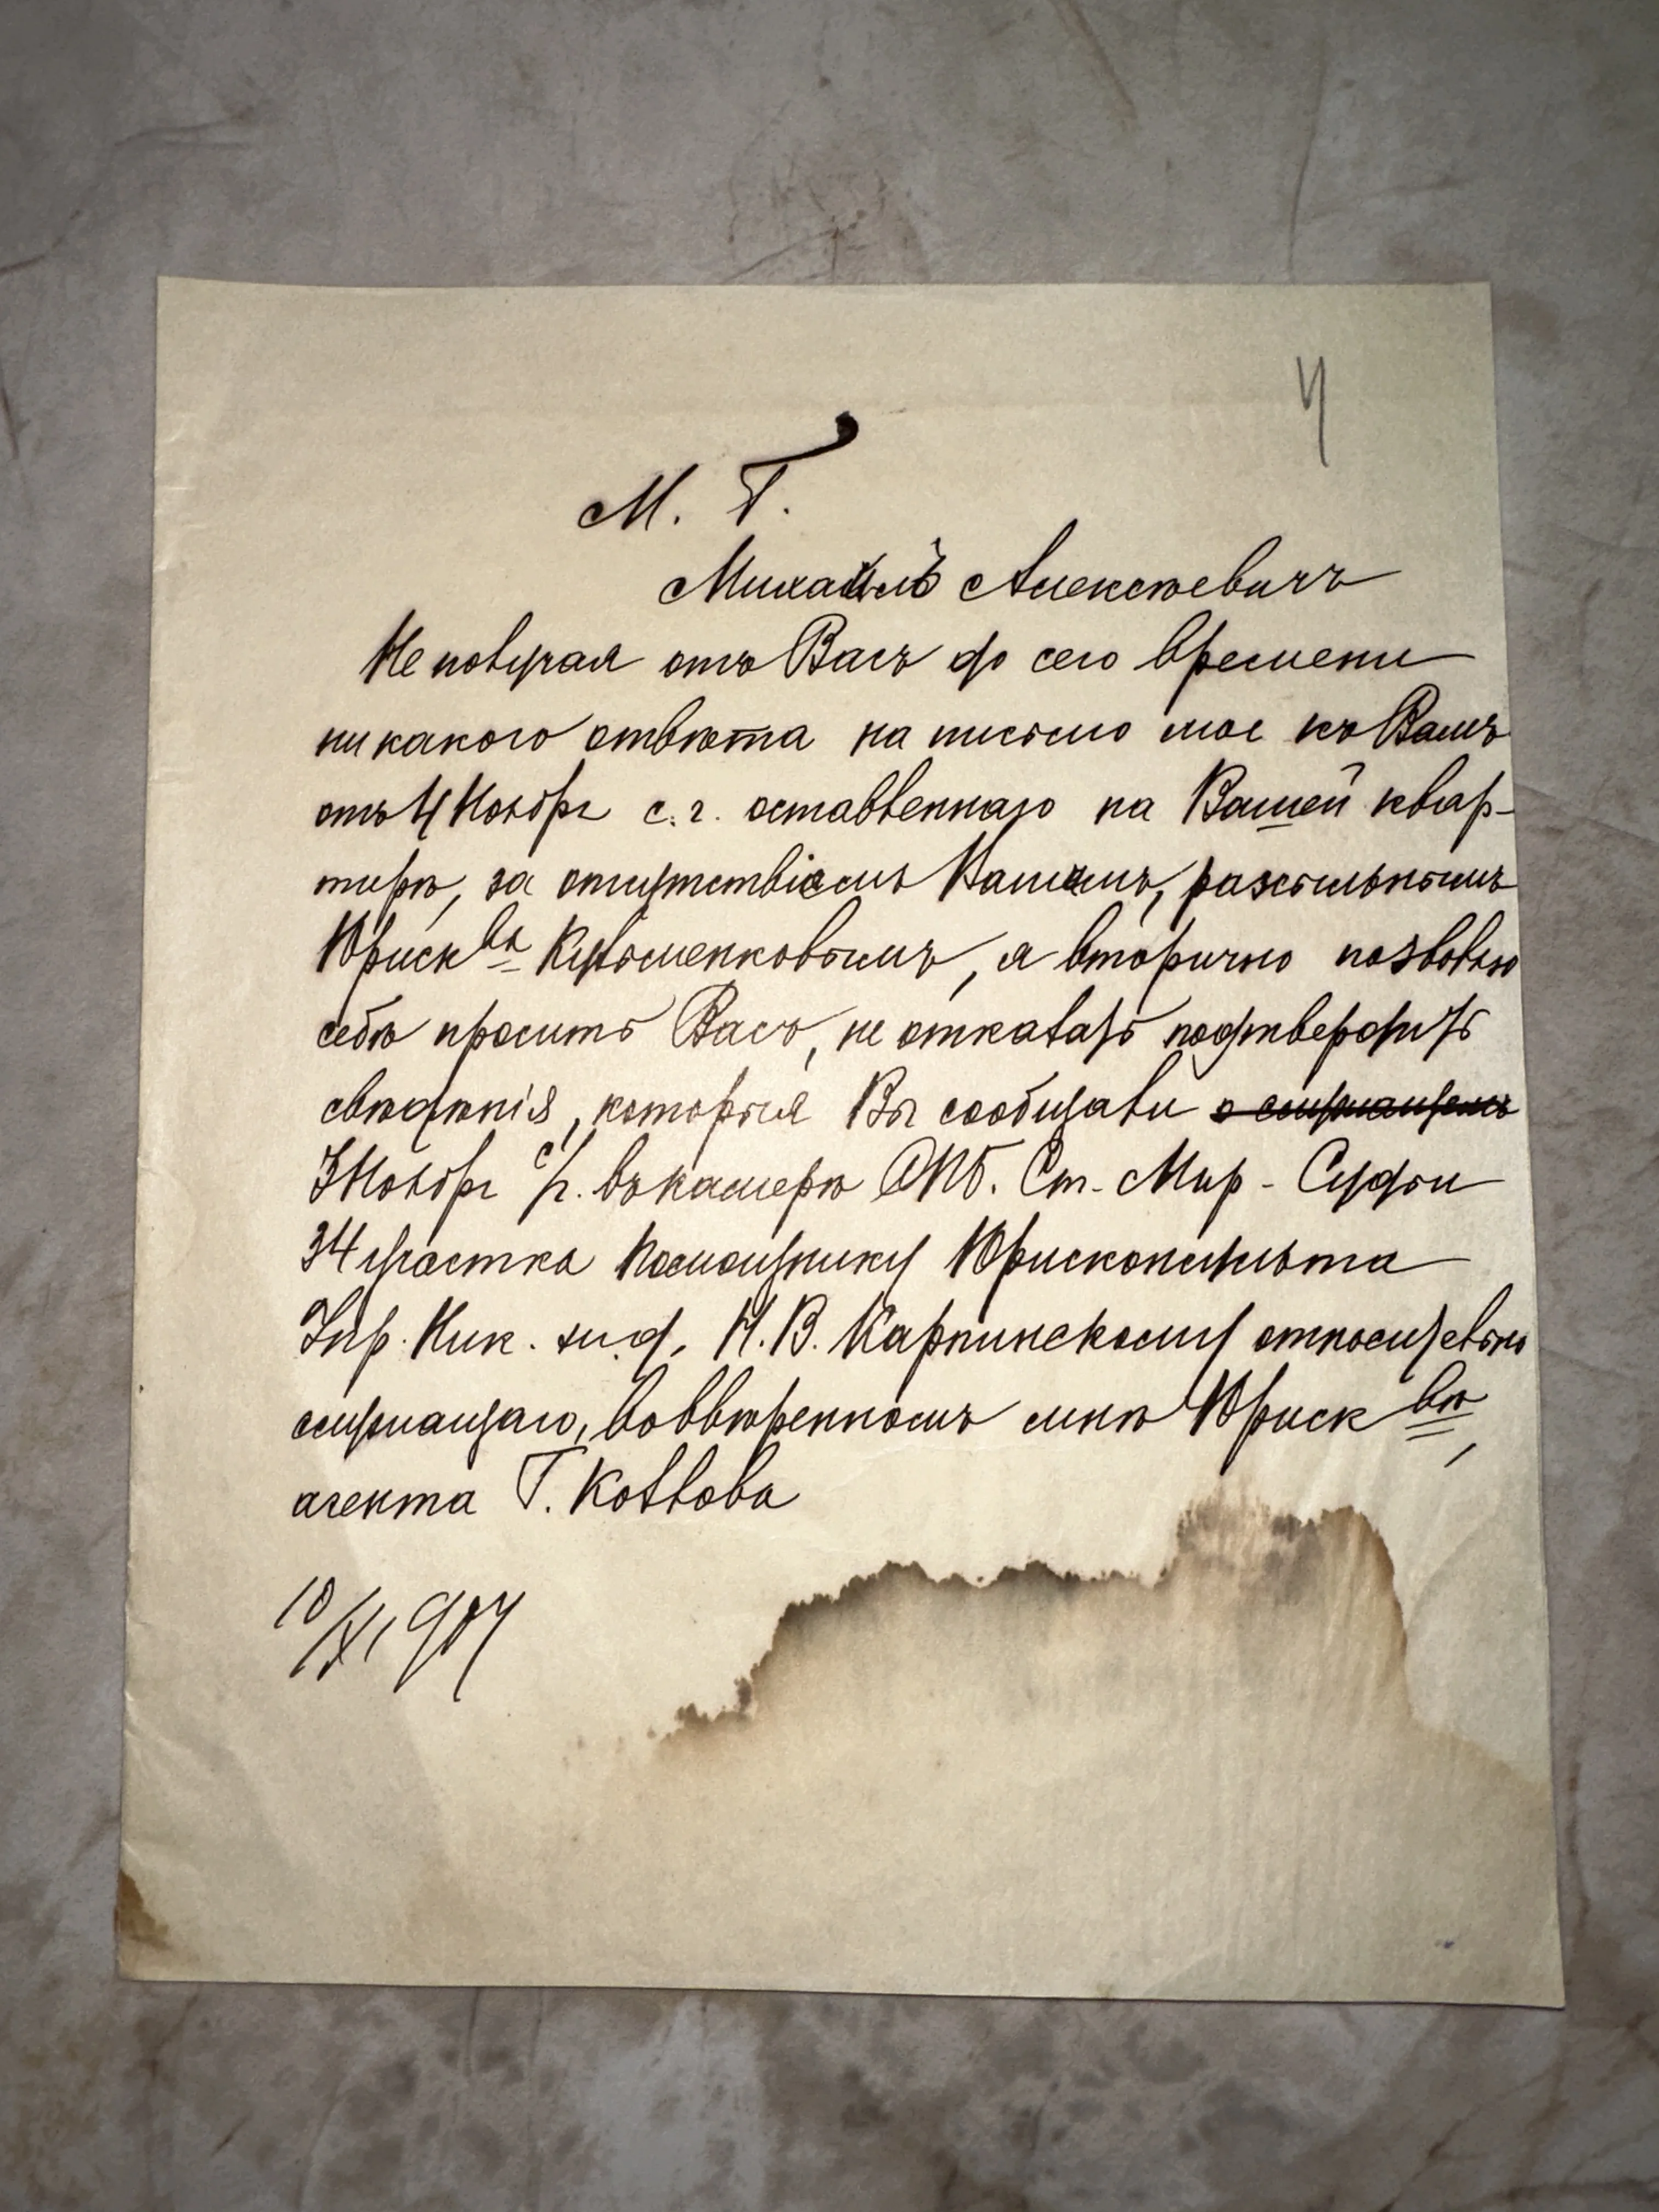 4
М. Г.
Михаилъ Алексѣевичъ
Не получая отъ Васъ до сего времени
никакого отвѣта на письмо мое къ Вамъ
отъ 4 Ноябр с. г. оставленнаго на Вашей квар-
тирѣ, за отсутствіемъ Вашимъ, разсыльнымъ
Юриск ва Кузьменковымъ, я вторично позволю
себѣ просить Васъ, не отказать подтвердить
свѣдѣнія, которыя Вы сообщали
3 Ноябр с/г. въ камерѣ СПБ. Ст. Мир. Судьи
34 участка Помощнику Юрисконсульта
Упр. Ник. ж. д. Н. В. Карпинскому относительно
служащаго, во ввѣренномъ мнѣ Юриск вѣ,
агента Г. Козлова
10/XI 907